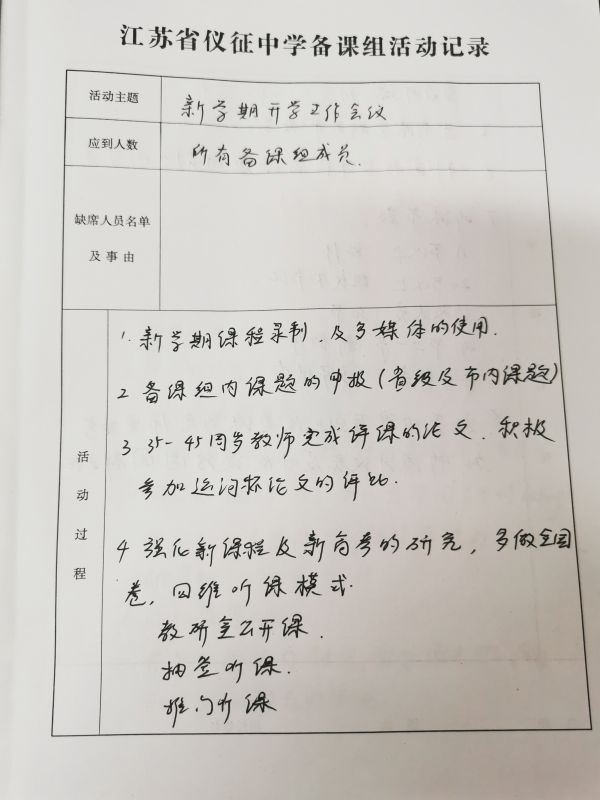 江苏省仪征中学备课组活动记录
活动主题
新学期开学工作会议
应到人数
所有备课组成员.
缺席人员名单
及事由
活动过程
1. 新学期课程录制, 及多媒体的使用.
2 备课组内课题的申报(省级及市内课题)
3 35-45周岁教师完成评课的论文. 积极
参加运河杯论文的评比.
4 强化新课程及新高考的研究, 多做全国
卷, 四维听课模式.
教研室公开课.
抽签听课.
推门听课